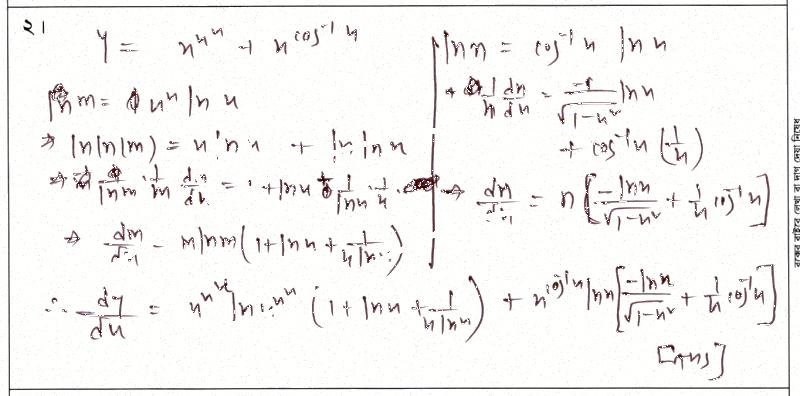 ২১
y = x^{x^x} + x^{cos^{-1} x}
ln m = x^x ln x
⇒ ln(ln m) = x ln x + ln ln x
⇒ \frac{1}{ln m} · \frac{1}{m} \frac{dm}{dx} = 1 + ln x + \frac{1}{ln x} · \frac{1}{x}
⇒ \frac{dm}{dx} = m ln m (1 + ln x + \frac{1}{x ln x})
ln n = cos^{-1} x ln x
⇒ \frac{1}{n} \frac{dn}{dx} = \frac{-1}{\sqrt{1-x^2}} ln x
+ cos^{-1} x (\frac{1}{x})
⇒ \frac{dn}{dx} = n [\frac{-ln x}{\sqrt{1-x^2}} + \frac{1}{x} cos^{-1} x]
∴ \frac{dy}{dx} = x^{x^x} ln x^{x^x} (1 + ln x + \frac{1}{x ln x}) + x^{cos^{-1} x} ln x [\frac{-ln x}{\sqrt{1-x^2}} + \frac{1}{x} cos^{-1} x]
[Ans]